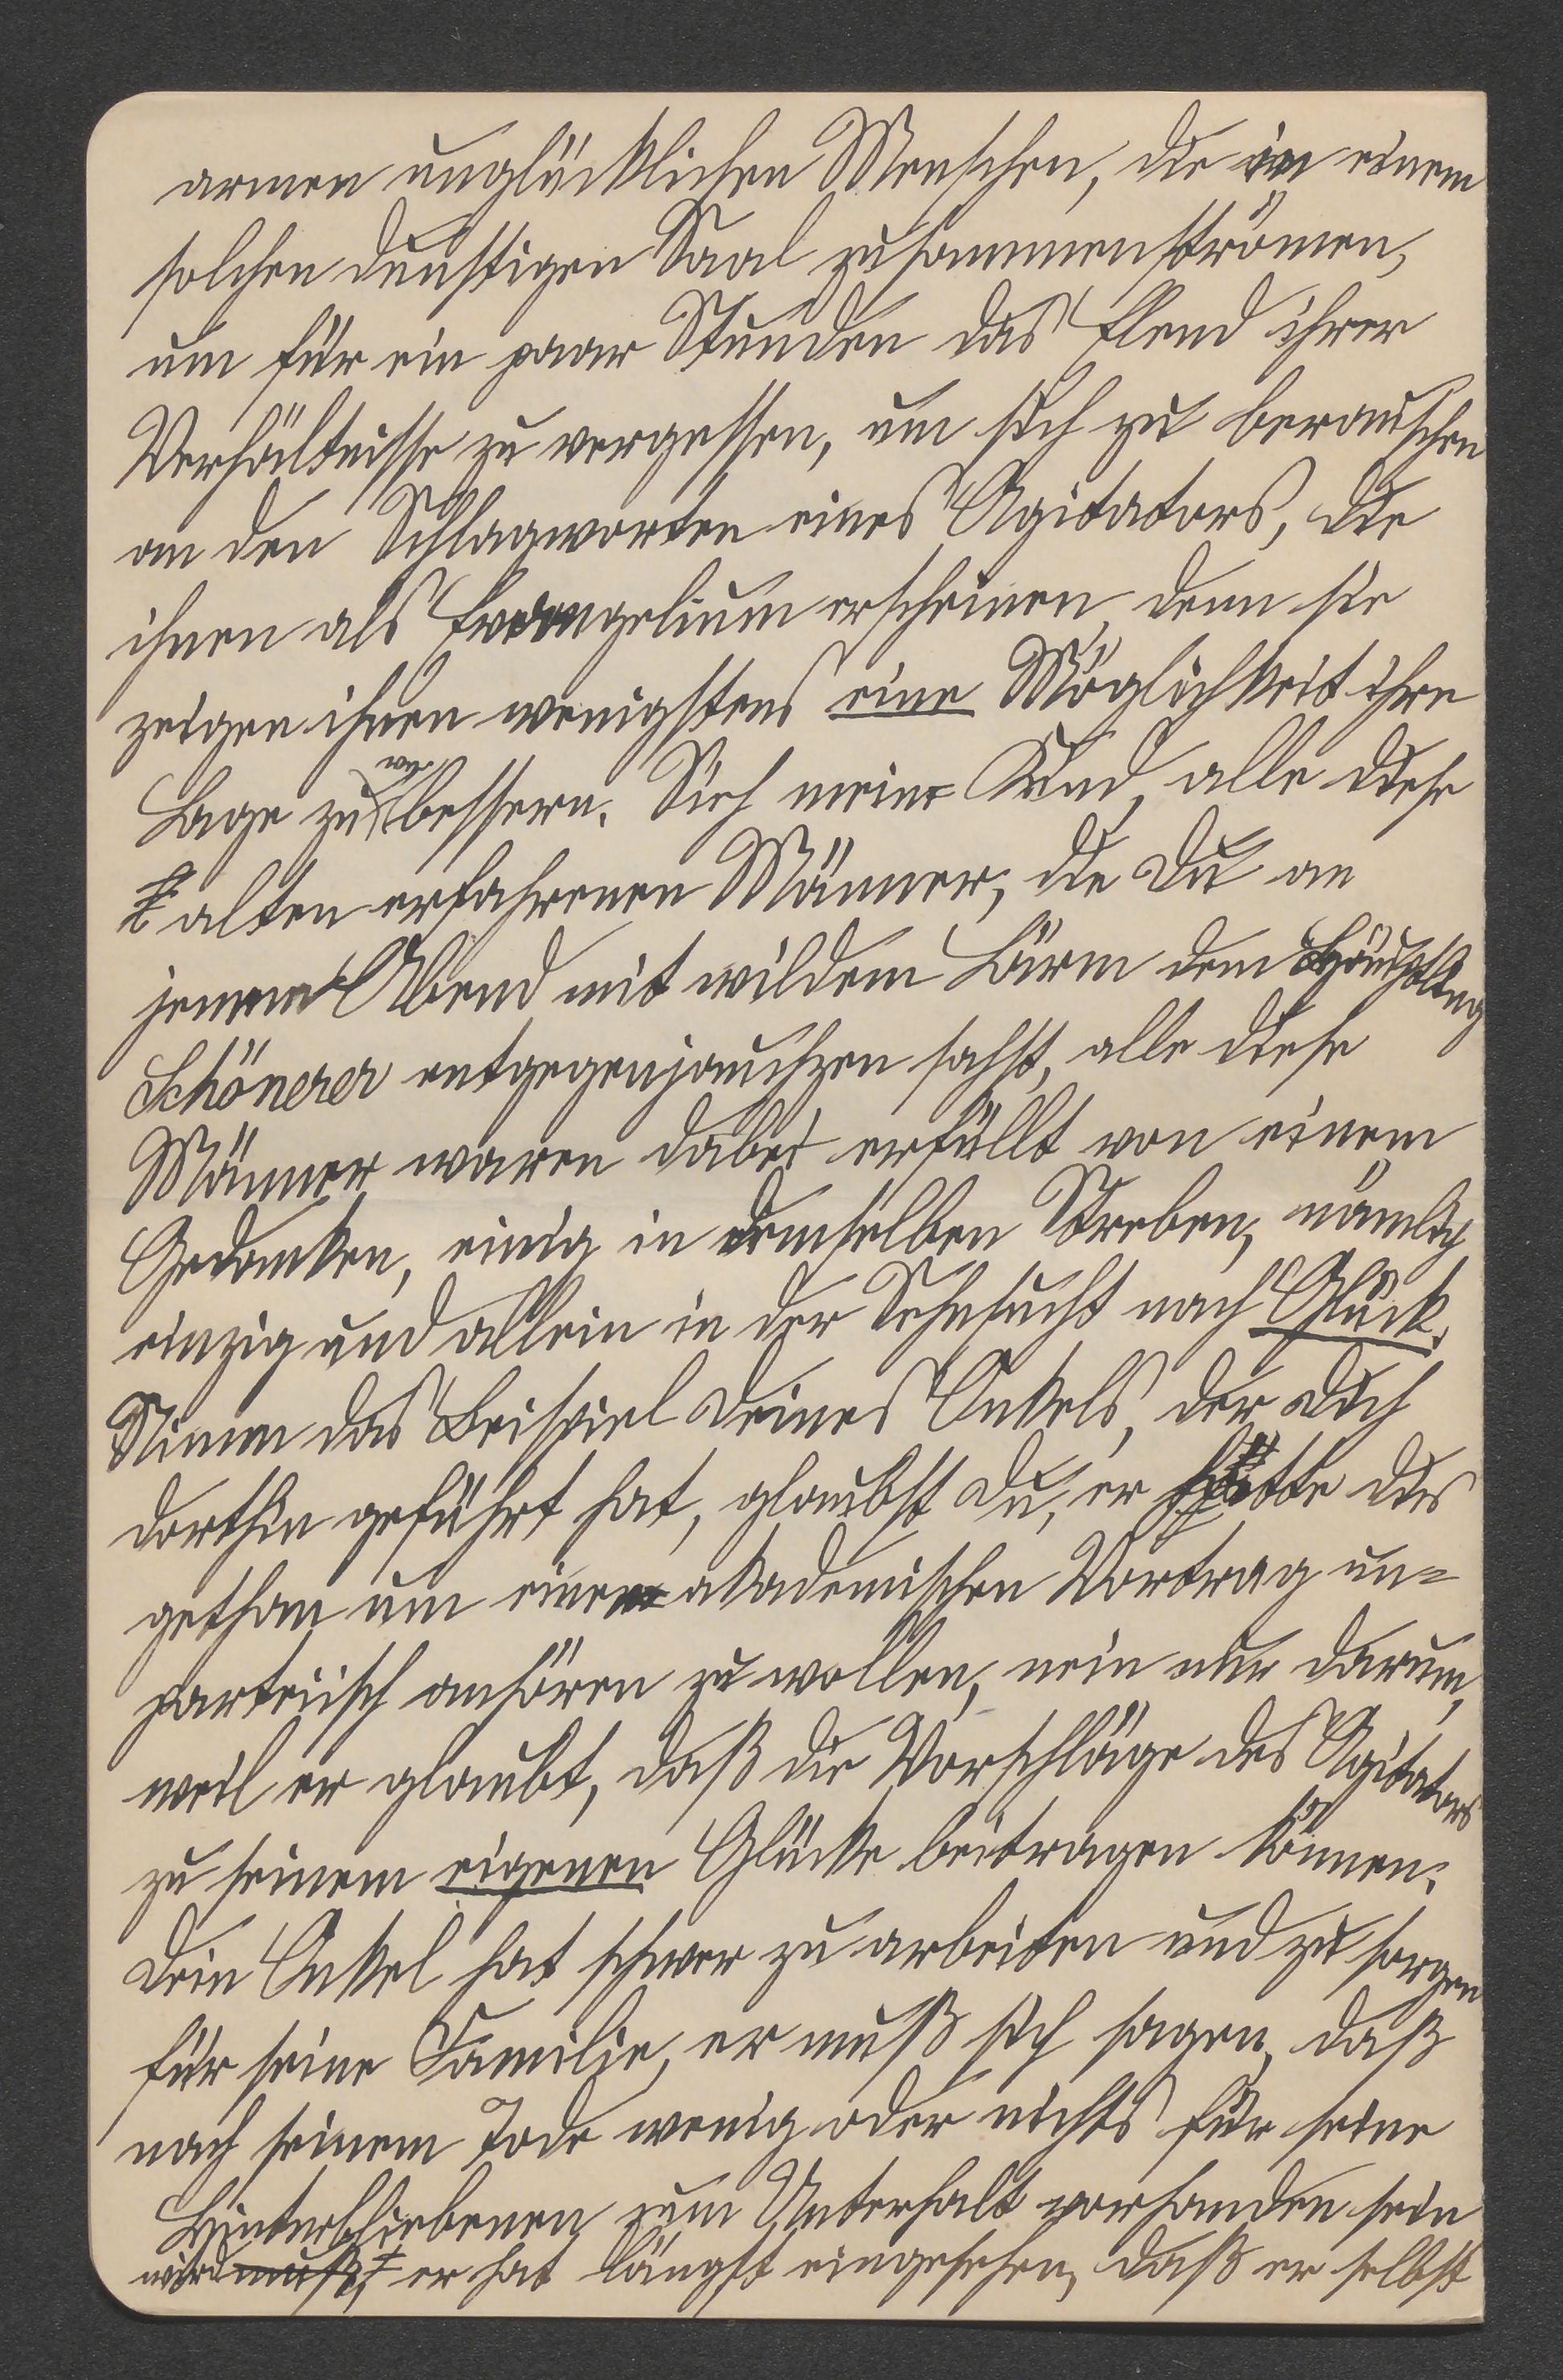 armen unglücklichen Menschen, die in einem
solchen dunstigen Saal zusammenströmen,
um für ein paar Stunden das Elend ihrer
Verhältnisse zu vergessen, um sich zu berauschen
an den Schlagworten eines Agitators, die
ihnen als Evangelium erscheinen, denn sie
zeigen ihnen wenigstens eine Möglichkeit ihre
Lage zu verbessern. Sieh mein Kind, alle diese
alten erfahrenen Männer, die Du an
jenem Abend mit wildem Lärm dem Häuptling
Schönerer entgegenjauchzen sahst, alle diese
Männer waren dabei erfüllt von einem
Gedanken, einig in demselben Streben, nämlich
einzig und allein in der Sehnsucht nach Glück.
Nimm das Beispiel Deines Onkels, der Dich
dorthin geführt hat, glaubst Du, er hätte dies
gethan um einen akademischen Vortrag un=
parteiisch anhören zu wollen, nein nur darum,
weil er glaubt, daß die Vorschläge des Agitators
zu seinem eigenen Glücke beitragen können.
Dein Onkel hat schwer zu arbeiten und zu sorgen
für seine Familie, er muß sich sagen, daß
nach seinem Tode wenig oder nichts für seine
Hinterbliebenen zum Unterhalt vorhanden sein
wird muß, er hat längst eingesehen, daß er selbst